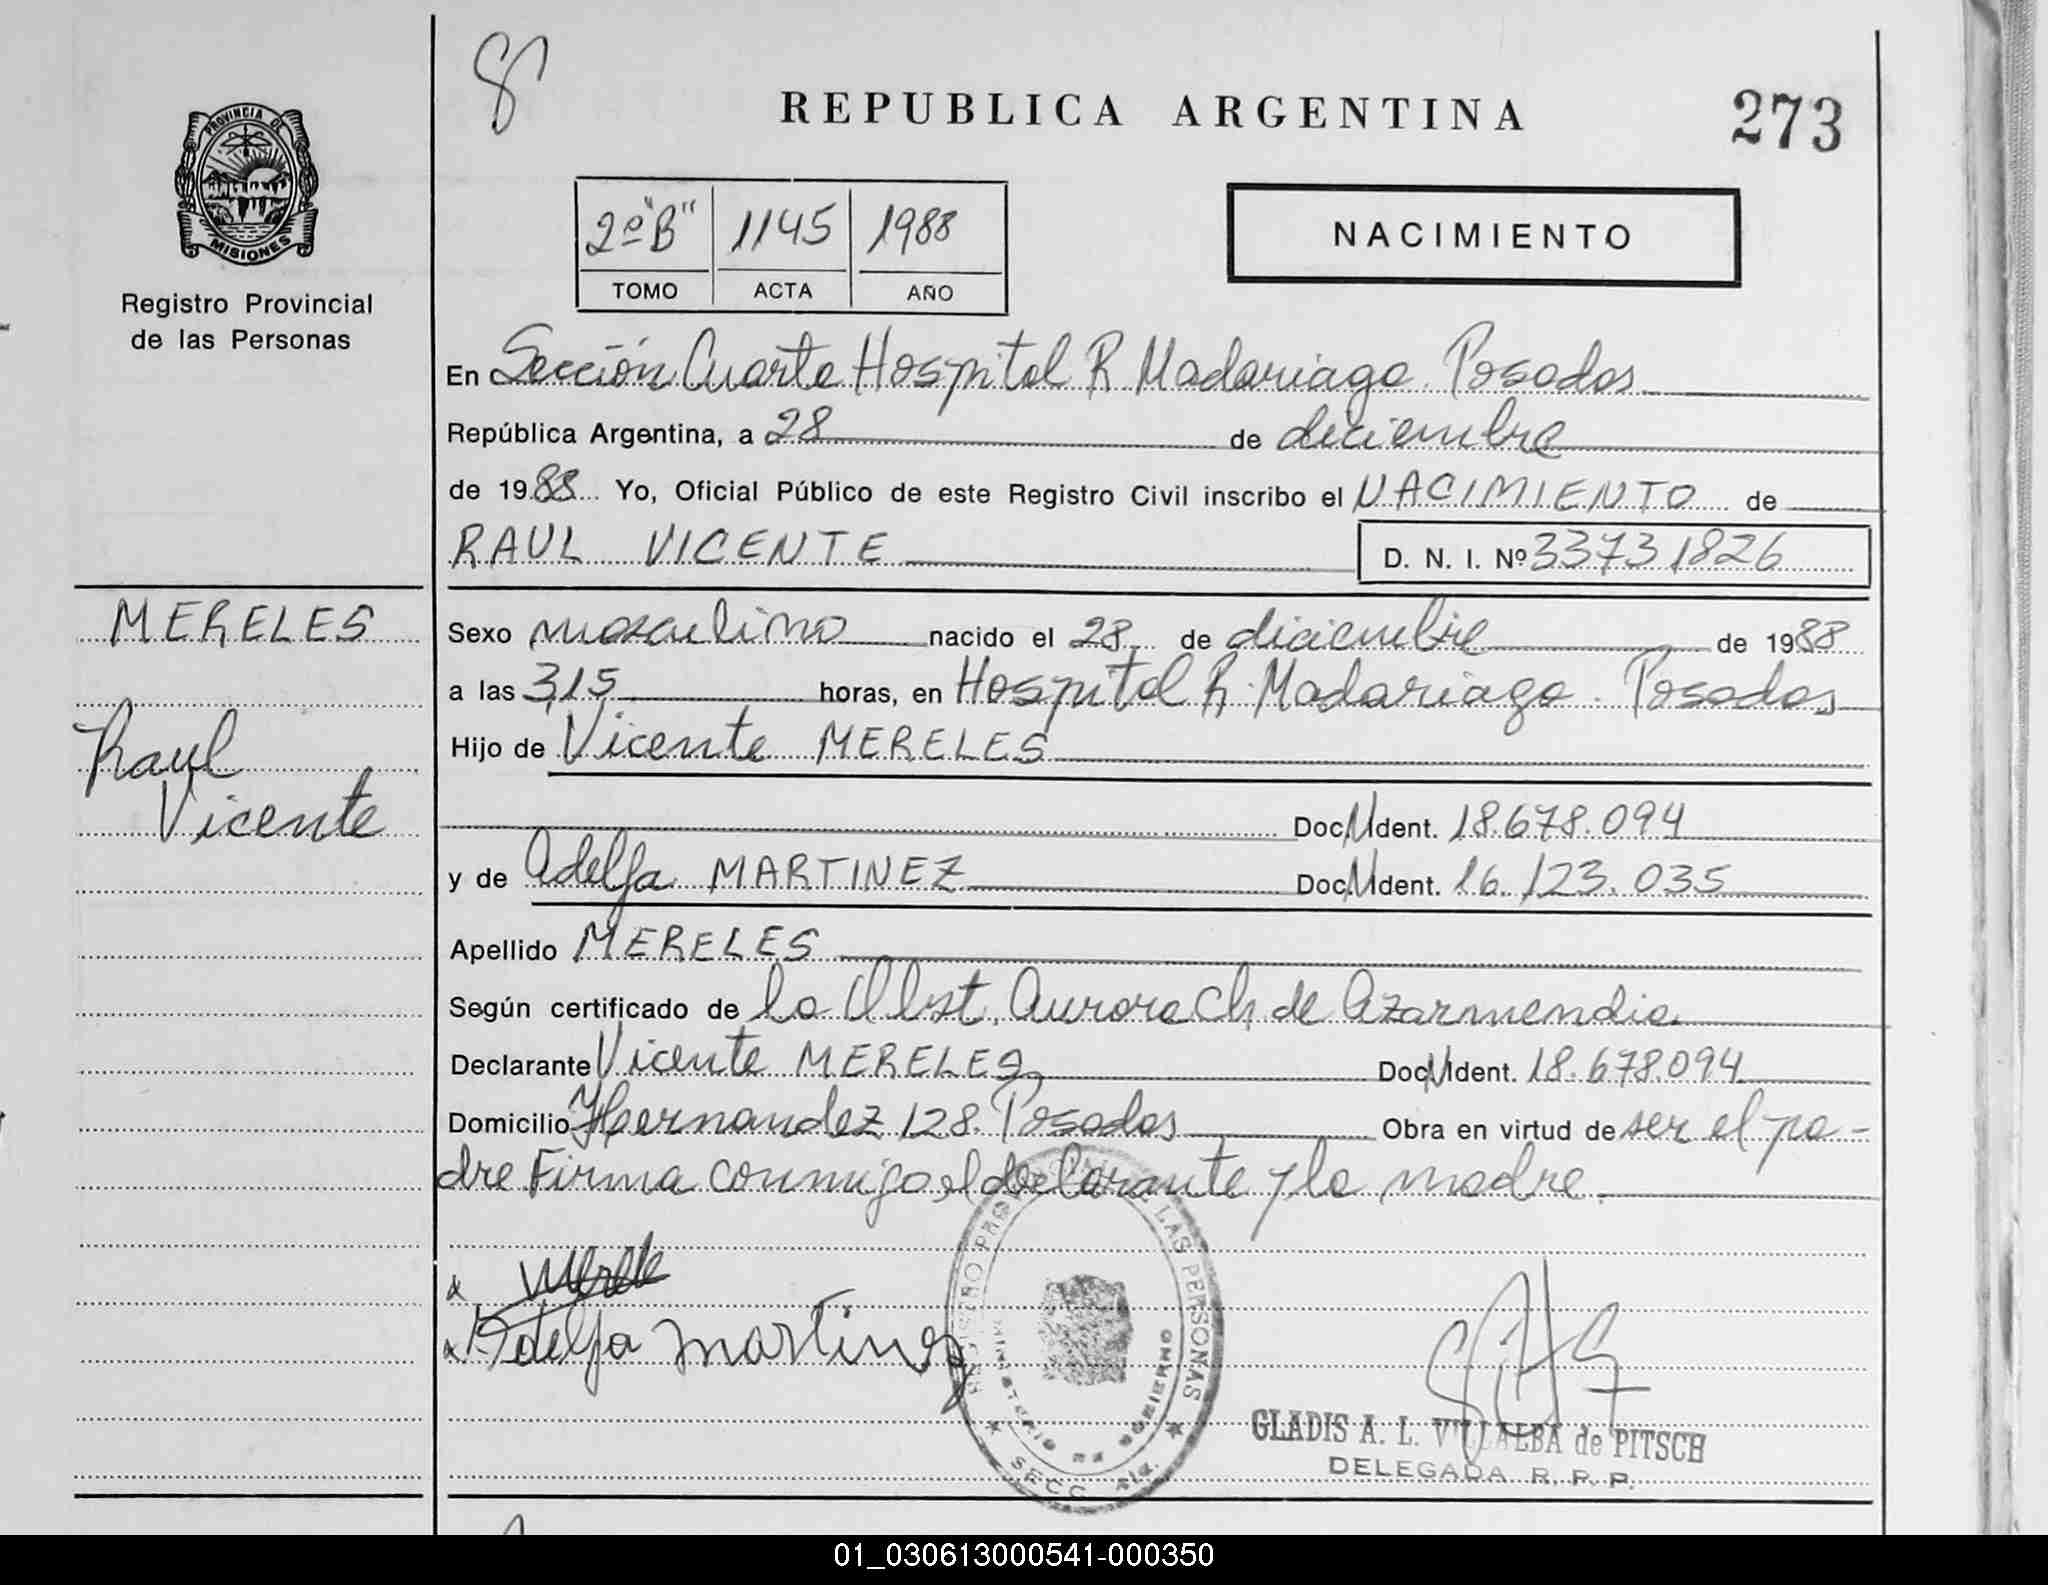 8
REPUBLICA ARGENTINA
273
PROVINCIA DE
MISIONES
Registro Provincial
de las Personas
2º "B" 1145 1988
TOMO ACTA AÑO
NACIMIENTO
En Sección Cuarta Hospital R Madariaga. Posadas
República Argentina, a 28 de diciembre
de 1988 Yo, Oficial Público de este Registro Civil inscribo el NACIMIENTO de
RAUL VICENTE D. N. I. Nº 33731826
MERELES
Raul
Vicente
Sexo masculino nacido el 28 de diciembre de 1988
a las 3,15 horas, en Hospital R. Madariaga. Posadas
Hijo de Vicente MERELES
Doc. N. Ident. 18.678.094
y de Adelfa MARTINEZ Doc. N. Ident. 16.123.035
Apellido MERELES
Según certificado de la Obst. Aurora Ch de Azarmendia
Declarante Vicente MERELES Doc. N. Ident. 18.678.094
Domicilio Hernandez 128. Posadas Obra en virtud de ser el pa-
dre Firma conmigo el declarante y la madre.
x Merele
x Adelfa Martinez
REGISTRO PROVINCIAL DE LAS PERSONAS
MINISTERIO DE GOBIERNO
SECC. 4ta.
GLADIS A. L. VILLALBA de PITSCH
DELEGADA R. P. P.
01_030613000541-000350